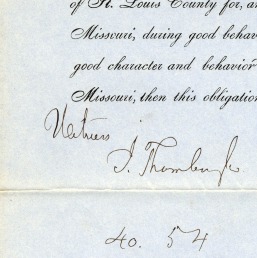 of St. Louis County for, an
Missouri, during good behav
good character and behavior
Missouri, then this obligation
Witness
J. Thornburgh
No. 54